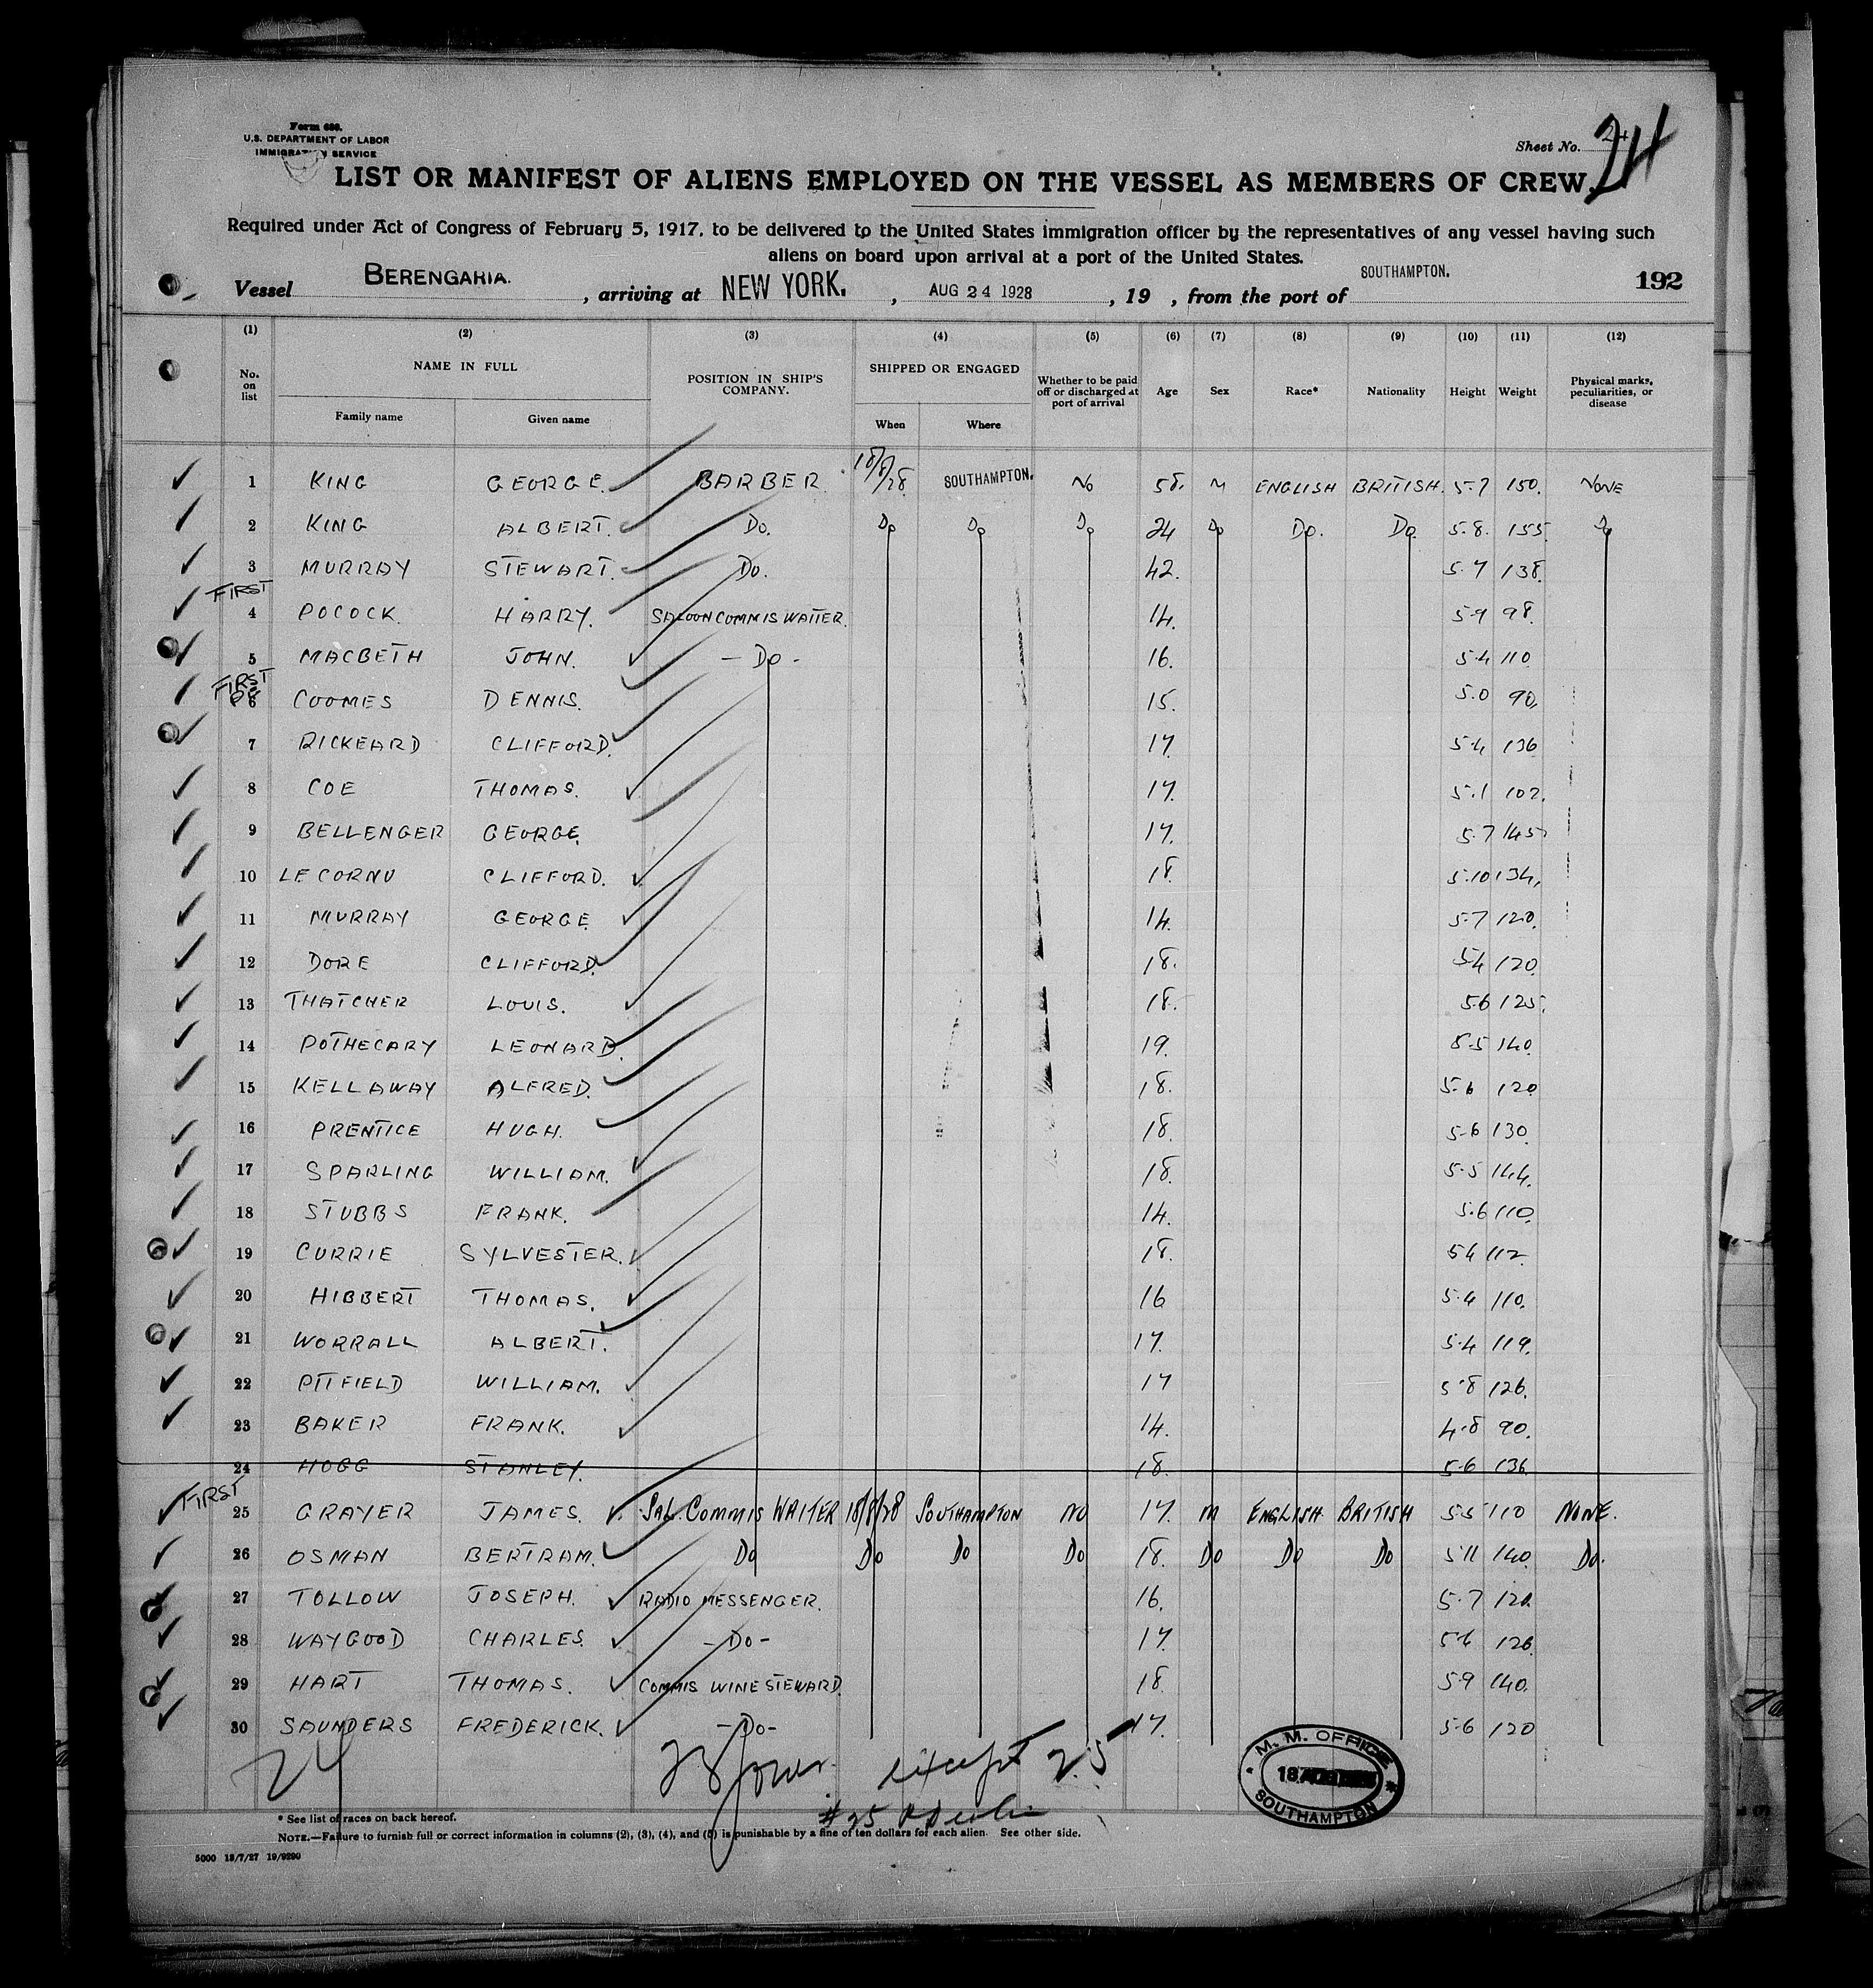 Form 680.
U.S. DEPARTMENT OF LABOR
IMMIGRATION SERVICE
Sheet No. 24
24
LIST OR MANIFEST OF ALIENS EMPLOYED ON THE VESSEL AS MEMBERS OF CREW.
Required under Act of Congress of February 5, 1917, to be delivered to the United States immigration officer by the representatives of any vessel having such
aliens on board upon arrival at a port of the United States.
Vessel BERENGARIA. , arriving at NEW YORK. , AUG 24 1928 , 19 , from the port of SOUTHAMPTON. 192
(1) (2) (3) (4) (5) (6) (7) (8) (9) (10) (11) (12)
No. on list NAME IN FULL Family name Given name POSITION IN SHIP'S COMPANY. SHIPPED OR ENGAGED When Where Whether to be paid off or discharged at port of arrival Age Sex Race* Nationality Height Weight Physical marks, peculiarities, or disease
1 KING GEORGE. BARBER 18/8/28 SOUTHAMPTON. NO 58. M ENGLISH BRITISH. 5.7 150. NONE
2 KING ALBERT. DO. DO DO DO 24 DO DO. DO. 5.8. 155. DO
3 MURRAY STEWART. DO. 42. 5.7 138.
FIRST
4 POCOCK. HARRY. SALOON COMMIS WAITER. 14. 5.9 98.
5 MACBETH JOHN. - DO - 16. 5.4 110
FIRST
6 COOMES DENNIS. 15. 5.0 90.
7 RICKEARD CLIFFORD. 17. 5.4 136
8 COE THOMAS. 17. 5.1 102.
9 BELLENGER GEORGE. 17. 5.7 145
10 LE CORNU CLIFFORD. 18. 5.10 134.
11 MURRAY GEORGE 14. 5.7 120.
12 DORE CLIFFORD. 18. 5.4 120.
13 THATCHER LOUIS. 18. 5.6 125.
14 POTHECARY LEONARD. 19. 5.5 140.
15 KELLAWAY ALFRED. 18. 5.6 120
16 PRENTICE HUGH. 18. 5.6 130.
17 SPARLING WILLIAM. 18. 5.5 144.
18 STUBBS FRANK. 14. 5.6 110.
19 CURRIE SYLVESTER. 18. 5.4 112.
20 HIBBERT THOMAS. 16 5.4 110.
21 WORRALL ALBERT. 17. 5.4 119.
22 PITFIELD WILLIAM. 17 5.8 126.
23 BAKER FRANK. 14. 4.8 90.
24 HOGG STANLEY. 18. 5.6 136
FIRST
25 GRAYER JAMES. SAL. COMMIS WAITER 18/8/28 SOUTHAMPTON NO 17. M ENGLISH BRITISH 5.5 110 NONE.
26 OSMAN BERTRAM. DO DO DO DO 18. DO DO DO 5.11 140. DO.
27 TOLLOW JOSEPH. RADIO MESSENGER. 16. 5.7 120.
28 WAYGOOD CHARLES. - DO - 17. 5.6 126
29 HART THOMAS. COMMIS WINE STEWARD. 18. 5.9 140.
30 SAUNDERS FREDERICK. - DO - 17. 5.6 120
24 except 25
#25
M. M. OFFICE
SOUTHAMPTON
* See list of races on back hereof.
NOTE.—Failure to furnish full or correct information in columns (2), (3), (4), and (5) is punishable by a fine of ten dollars for each alien. See other side.
5000 13/7/27 19/9290